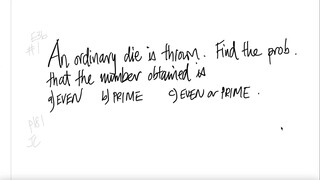 E86
#1
An ordinary die is thrown. Find the prob.
that the number obtained is
a) EVEN b) PRIME c) EVEN or PRIME.
P181